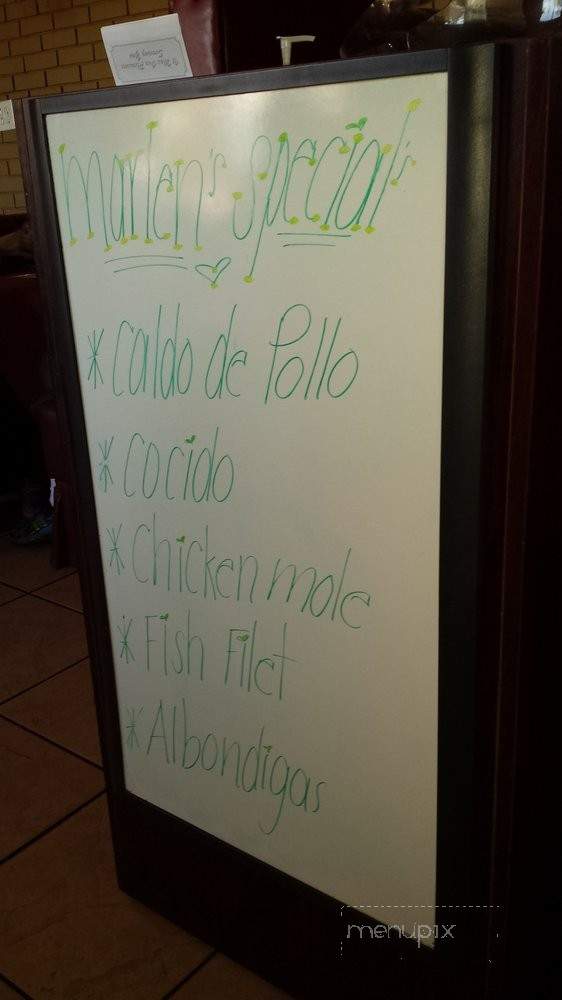 Marlen's Special's
* Caldo de Pollo
* Cocido
* Chicken mole
* Fish Filet
* Albondigas
menupix